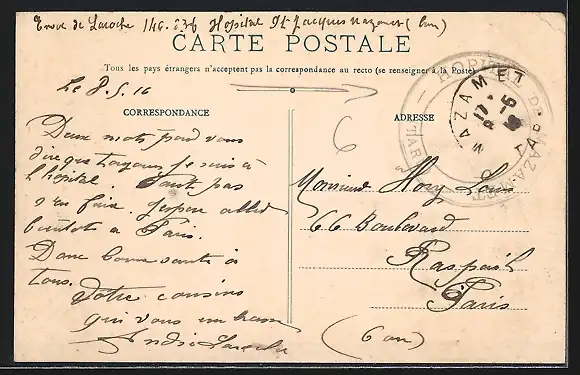 Envoi de Laroche 146. 236 Hopital St Jacques Mazamet (
CARTE POSTALE
Tous les pays étrangers n'acceptent pas la correspondance au recto (se renseigner à la Poste)
Le 8. 5. 16
CORRESPONDANCE
ADRESSE
HOPITAL DE MAZAMET
MAZAMET
TARN
Deux mots pour vous
dire que toujours je suis à
l'hopital. Faut pas
s'en faire. J'espere aller
bientot a Paris.
Donc bonne santé à
tous,
Votre cousin
qui vous embrasse
André Laroche
6
Monsieur Hory Louis
66 Boulevard
Raspail
Paris
(6 arr)